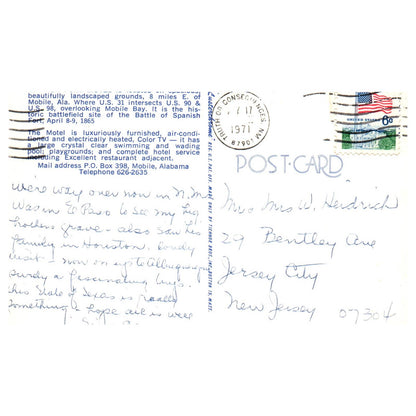 beautifully landscaped grounds, 8 miles E. of
Mobile, Ala. Where U.S. 31 intersects U.S. 90 &
U.S. 98, overlooking Mobile Bay. It is the his-
toric battlefield site of the Battle of Spanish
Fort, April 8-9, 1865
The Motel is luxuriously furnished, air-condi-
tioned and electrically heated, Color TV — it has
a large crystal clear swimming and wading
pool; playgrounds; and complete hotel service
including Excellent restaurant adjacent.
Mail address P.O. Box 398, Mobile, Alabama
Telephone 626-2635
were way over now in N.M.
Was in El Paso to see my
brothers grave - also saw his
family in Houston. Lovely
visit - now on up to Albuquerque
surely a fascinating
this State of Texas is really
something - hope all is well
TRUTH OR CONSEQUENCES, NM
17
1971
87901
UNITED STATES
6c
POST-CARD
Mrs W. Heidrich
29 Bentley Ave
Jersey City
New Jersey 07304